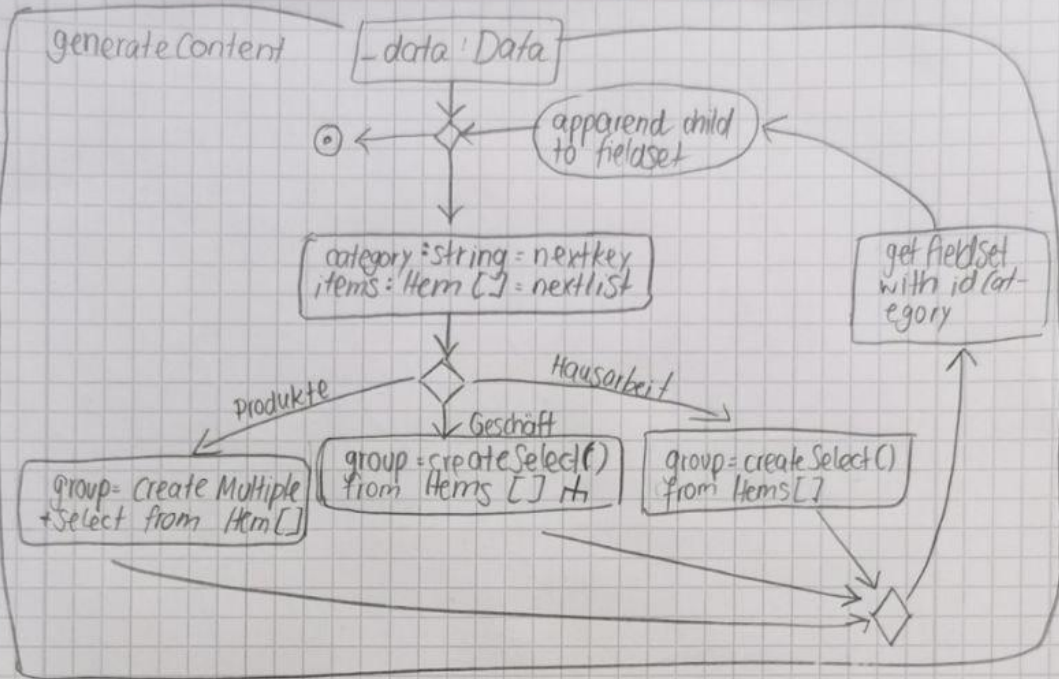 generateContent
_data : Data
apparend child
to fieldset
category : string = nextkey
items : Item [] = nextlist
get fieldset
with id Cat-
egory
Produkte
Hausarbeit
Geschäft
group = Create Multiple
+Select from Item []
group = createSelect()
from Items []
group = create Select()
from Items []